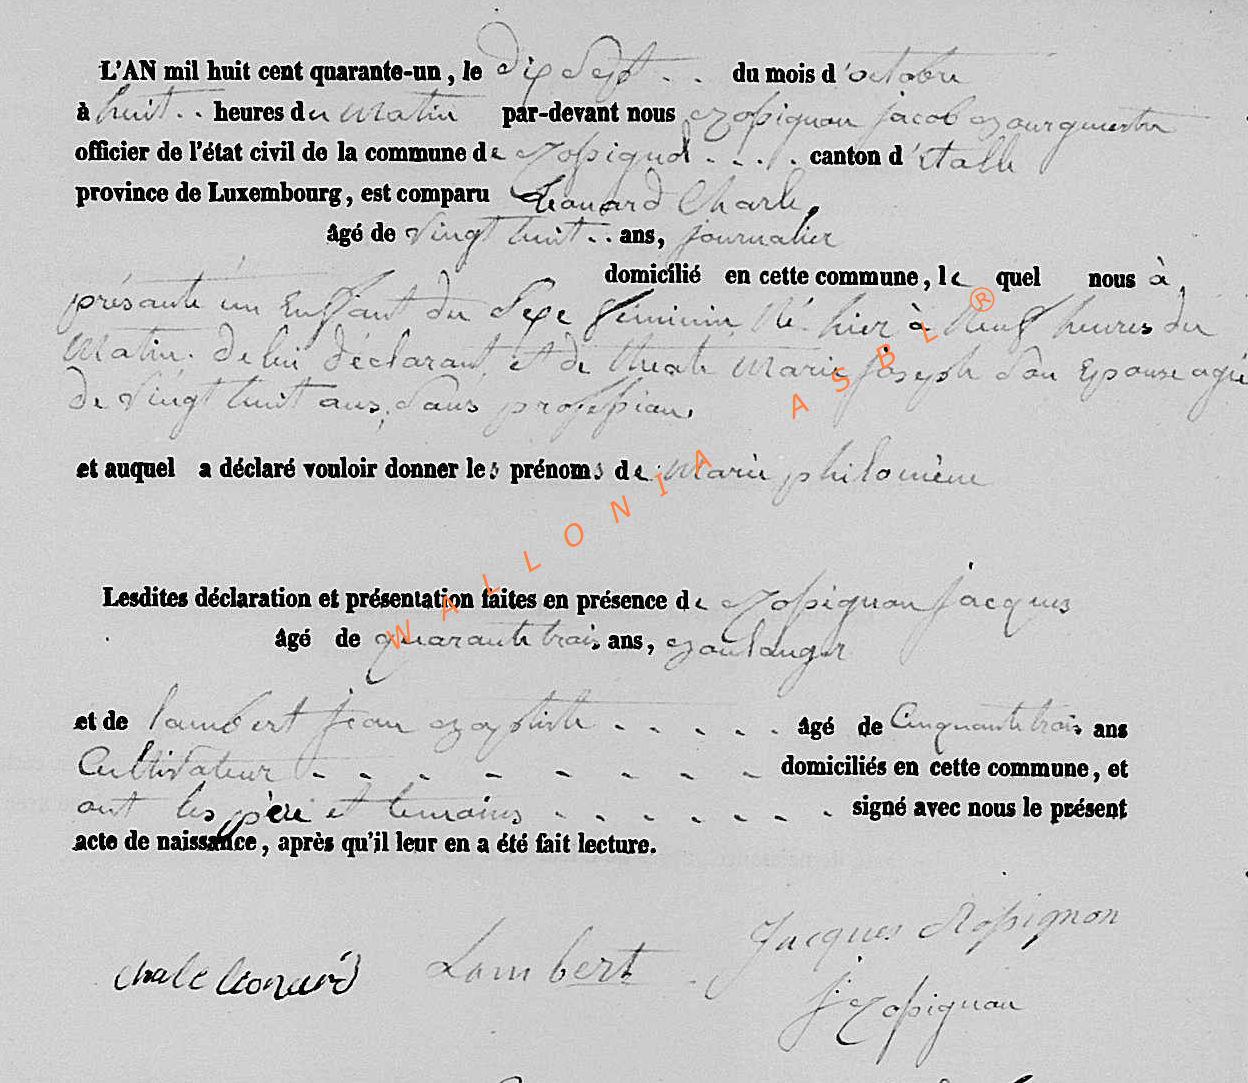 L'AN mil huit cent quarante-un, le dix Sept . . du mois d'octobre
à huit . . heures du Matin par-devant nous Rossignon jacob Bourguestre
officier de l'état civil de la commune de Rossignol . . . . canton d'Etalle
province de Luxembourg, est comparu Léonard Charle,
âgé de Vingt huit . . ans, journalier
domicilié en cette commune, le quel nous à
présanté un Enffant du Sexe féminin Né hier à Neuf heures du
Matin. de lui déclarant, et de Marie joseph Son Epouse agée
de Vingt huit ans, Sans profession,
et auquel a déclaré vouloir donner les prénoms de Marie philomène
Lesdites déclaration et présentation faites en présence de Rossignon jacques
âgé de quarante trois ans, Boulanger
et de lambert jean Baptiste . . . . . âgé de Cinquante trois ans
Cultivateur - - - - - - - - domiciliés en cette commune, et
ont les père et temoins . . . . . . . signé avec nous le présent
acte de naissance, après qu'il leur en a été fait lecture.
Jacques Rossignon
Charle leonard Lambert
j Rossignon
WALLONIA ASBL ®